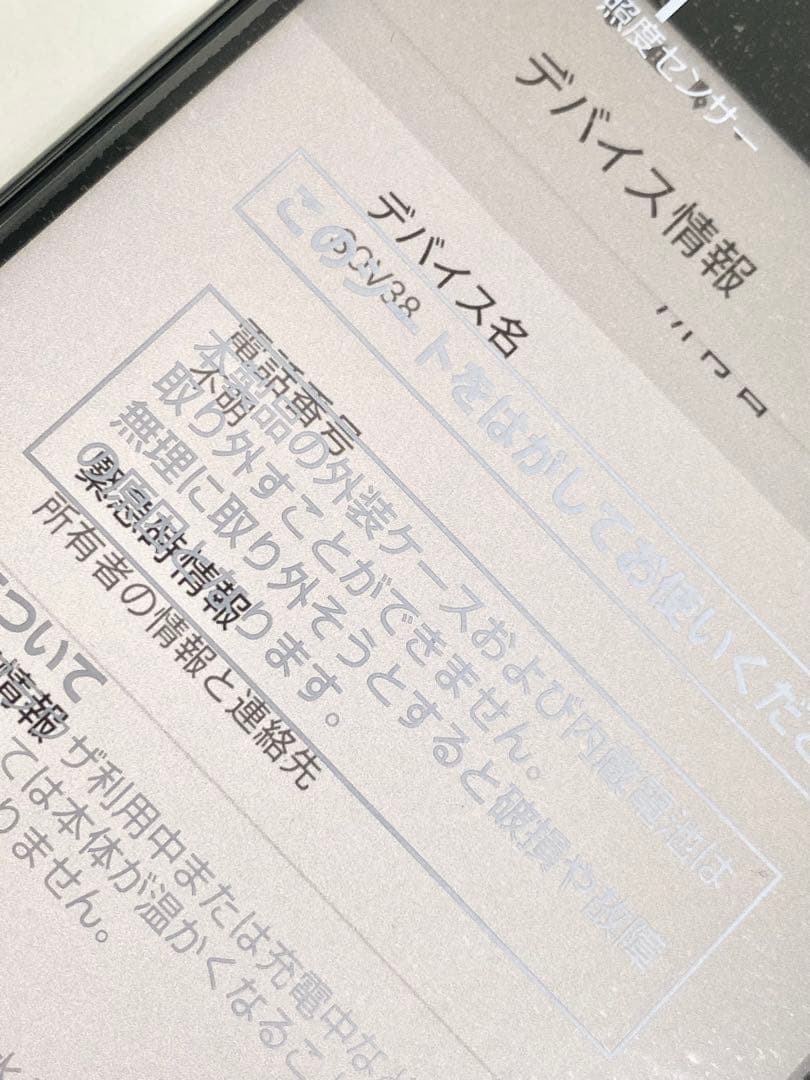 照度センサー
デバイス情報
デバイス名
SCV38
このシートをはがしてお使いくださ
電話番号
不明
本製品の外装ケースおよび内蔵電池は
取り外すことができません。
無理に取り外そうとすると破損や故障
の原因となります。
緊急時情報
所有者の情報と連絡先
について
情報
ザ利用中または充電中な
ては本体が温かくなるこ
りません。